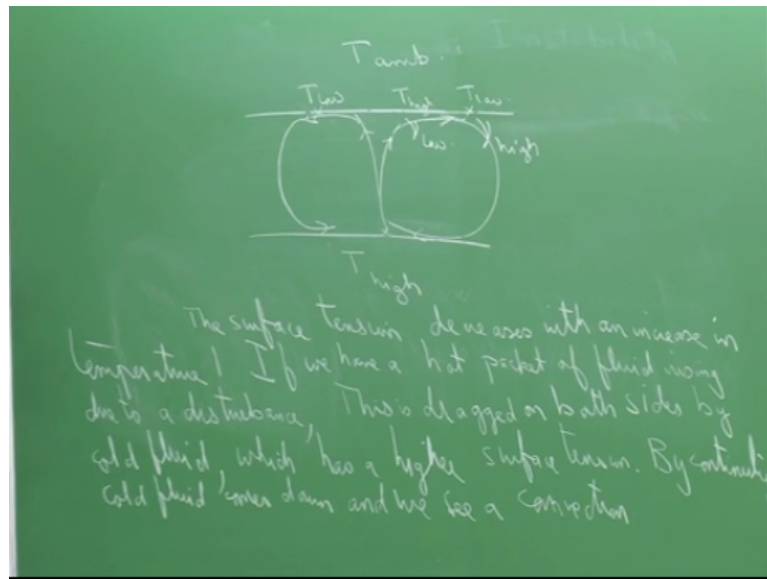 Tamb.
Tlow Thigh Tlow.
low. high
Thigh
The surface tension decreases with an increase in
temperature! If we have a hot packet of fluid rising
due to a disturbance, This is dragged on both sides by
cold fluid, which has a higher surface tension. By continuity
cold fluid comes down and we see a convection